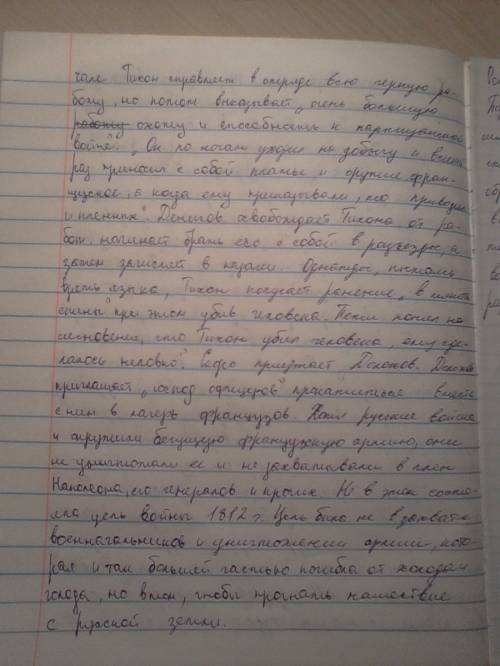 чале Тихон справляет в отряде всю черную ра-
боту, но потом выказывает „очень большую
охоту и способность к партизанской
войне". „Он по ночам уходил на добычу и всякий
раз приносил с собой платье и оружие фран-
цузское, а когда ему приказывали, то приводил
и пленных". Денисов освобождает Тихона от ра-
бот, начинает брать его с собой в разъезды, а
затем зачисляет в казаки. Однажды, пытаясь
взять языка, Тихон получает ранение „в мякоть
спины" при этом убив человека. Петя понял на
мгновение, что Тихон убил человека, ему сде-
лалось неловко". Скоро приезжает Долохов. Долохов
приглашает „господ офицеров" прокатиться вместе
с ним в лагерь французов. Хотя русские войска
и окружили бегущую французскую армию, они
не уничтожали ее и не захватывали в плен
Наполеона, его генералов и прочих. Не в этом состо-
яла цель войны 1812 г. Цель была не в захвате
военначальников и уничтожении армии, кото-
рая и так большей частью погибла от холода и
голода, но в том, чтобы прогнать нашествие
с русской земли.